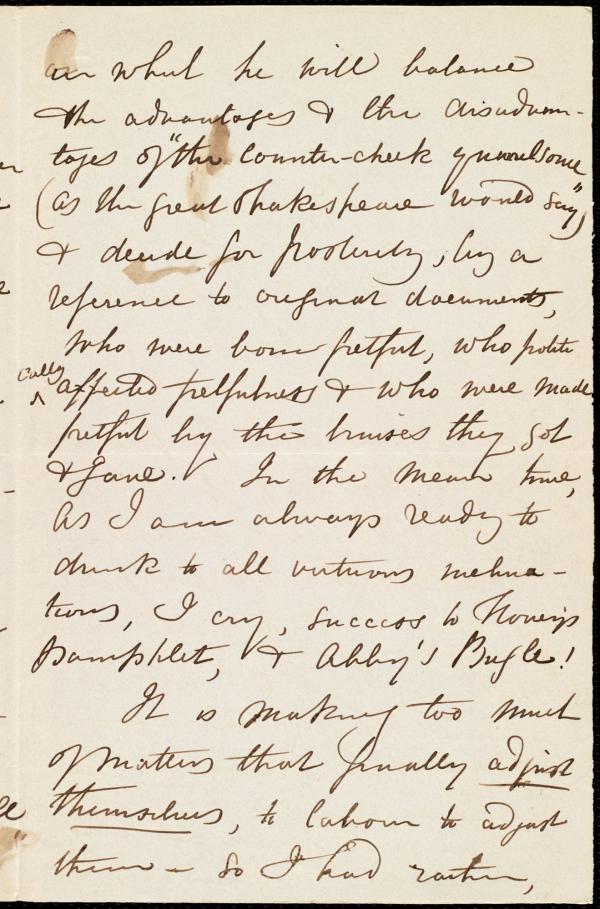 our what he will balance
the advantages & the disadvan-
tages of "the counter-check quarrelsome
(as the great Shakespeare would say")
& decide for Posterity, by a
reference to original documents,
who were born fretful, who politi
cally
affected fretfulness & who were made
fretful by the bruises they got
& gave. In the mean time,
as I am always ready to
drink to all virtuous inclina-
tions, I cry, success to Hovey's
Pamphlet, & Abby's Bugle!
It is making too much
of matters that finally adjust
themselves, to labour to adjust
them - so I had rather,